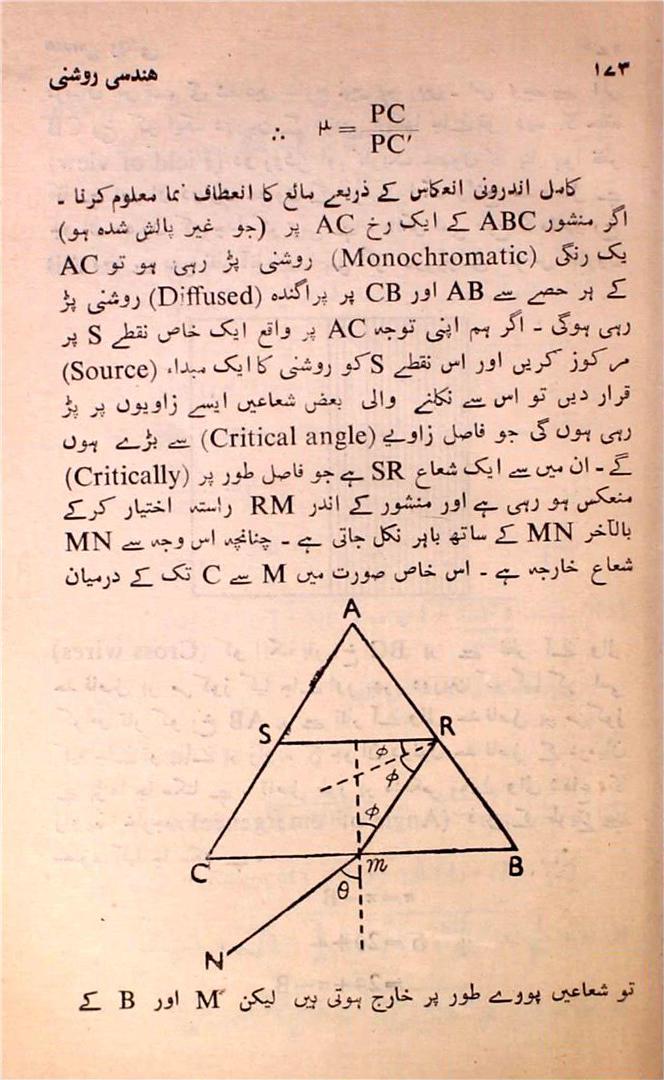 ۱۷۳ ہندسی روشنی
∴ μ = PC / PC′
کامل اندرونی انعکاس کے ذریعے مائع کا انعطاف نما معلوم کرنا ۔
اگر منشور ABC کے ایک رخ AC پر (جو غیر پالش شدہ ہو)
یک رنگی (Monochromatic) روشنی پڑ رہی ہو تو AC
کے ہر حصے سے AB اور CB پر پراگندہ (Diffused) روشنی پڑ
رہی ہوگی ۔ اگر ہم اپنی توجہ AC پر واقع ایک خاص نقطے S پر
مرکوز کریں اور اس نقطے S کو روشنی کا ایک مبداء (Source)
قرار دیں تو اس سے نکلنے والی بعض شعاعیں ایسے زاویوں پر پڑ
رہی ہوں گی جو فاصل زاویے (Critical angle) سے بڑے ہوں
گے ۔ ان میں سے ایک شعاع SR ہے جو فاصل طور پر (Critically)
منعکس ہو رہی ہے اور منشور کے اندر RM راستہ اختیار کرکے
بالآخر MN کے ساتھ باہر نکل جاتی ہے ۔ چنانچہ اس وجہ سے MN
شعاع خارجہ ہے ۔ اس خاص صورت میں M سے C تک کے درمیان
A
S R
φ
φ
φ
C m B
θ
N
تو شعاعیں پورے طور پر خارج ہوتی ہیں لیکن M اور B کے